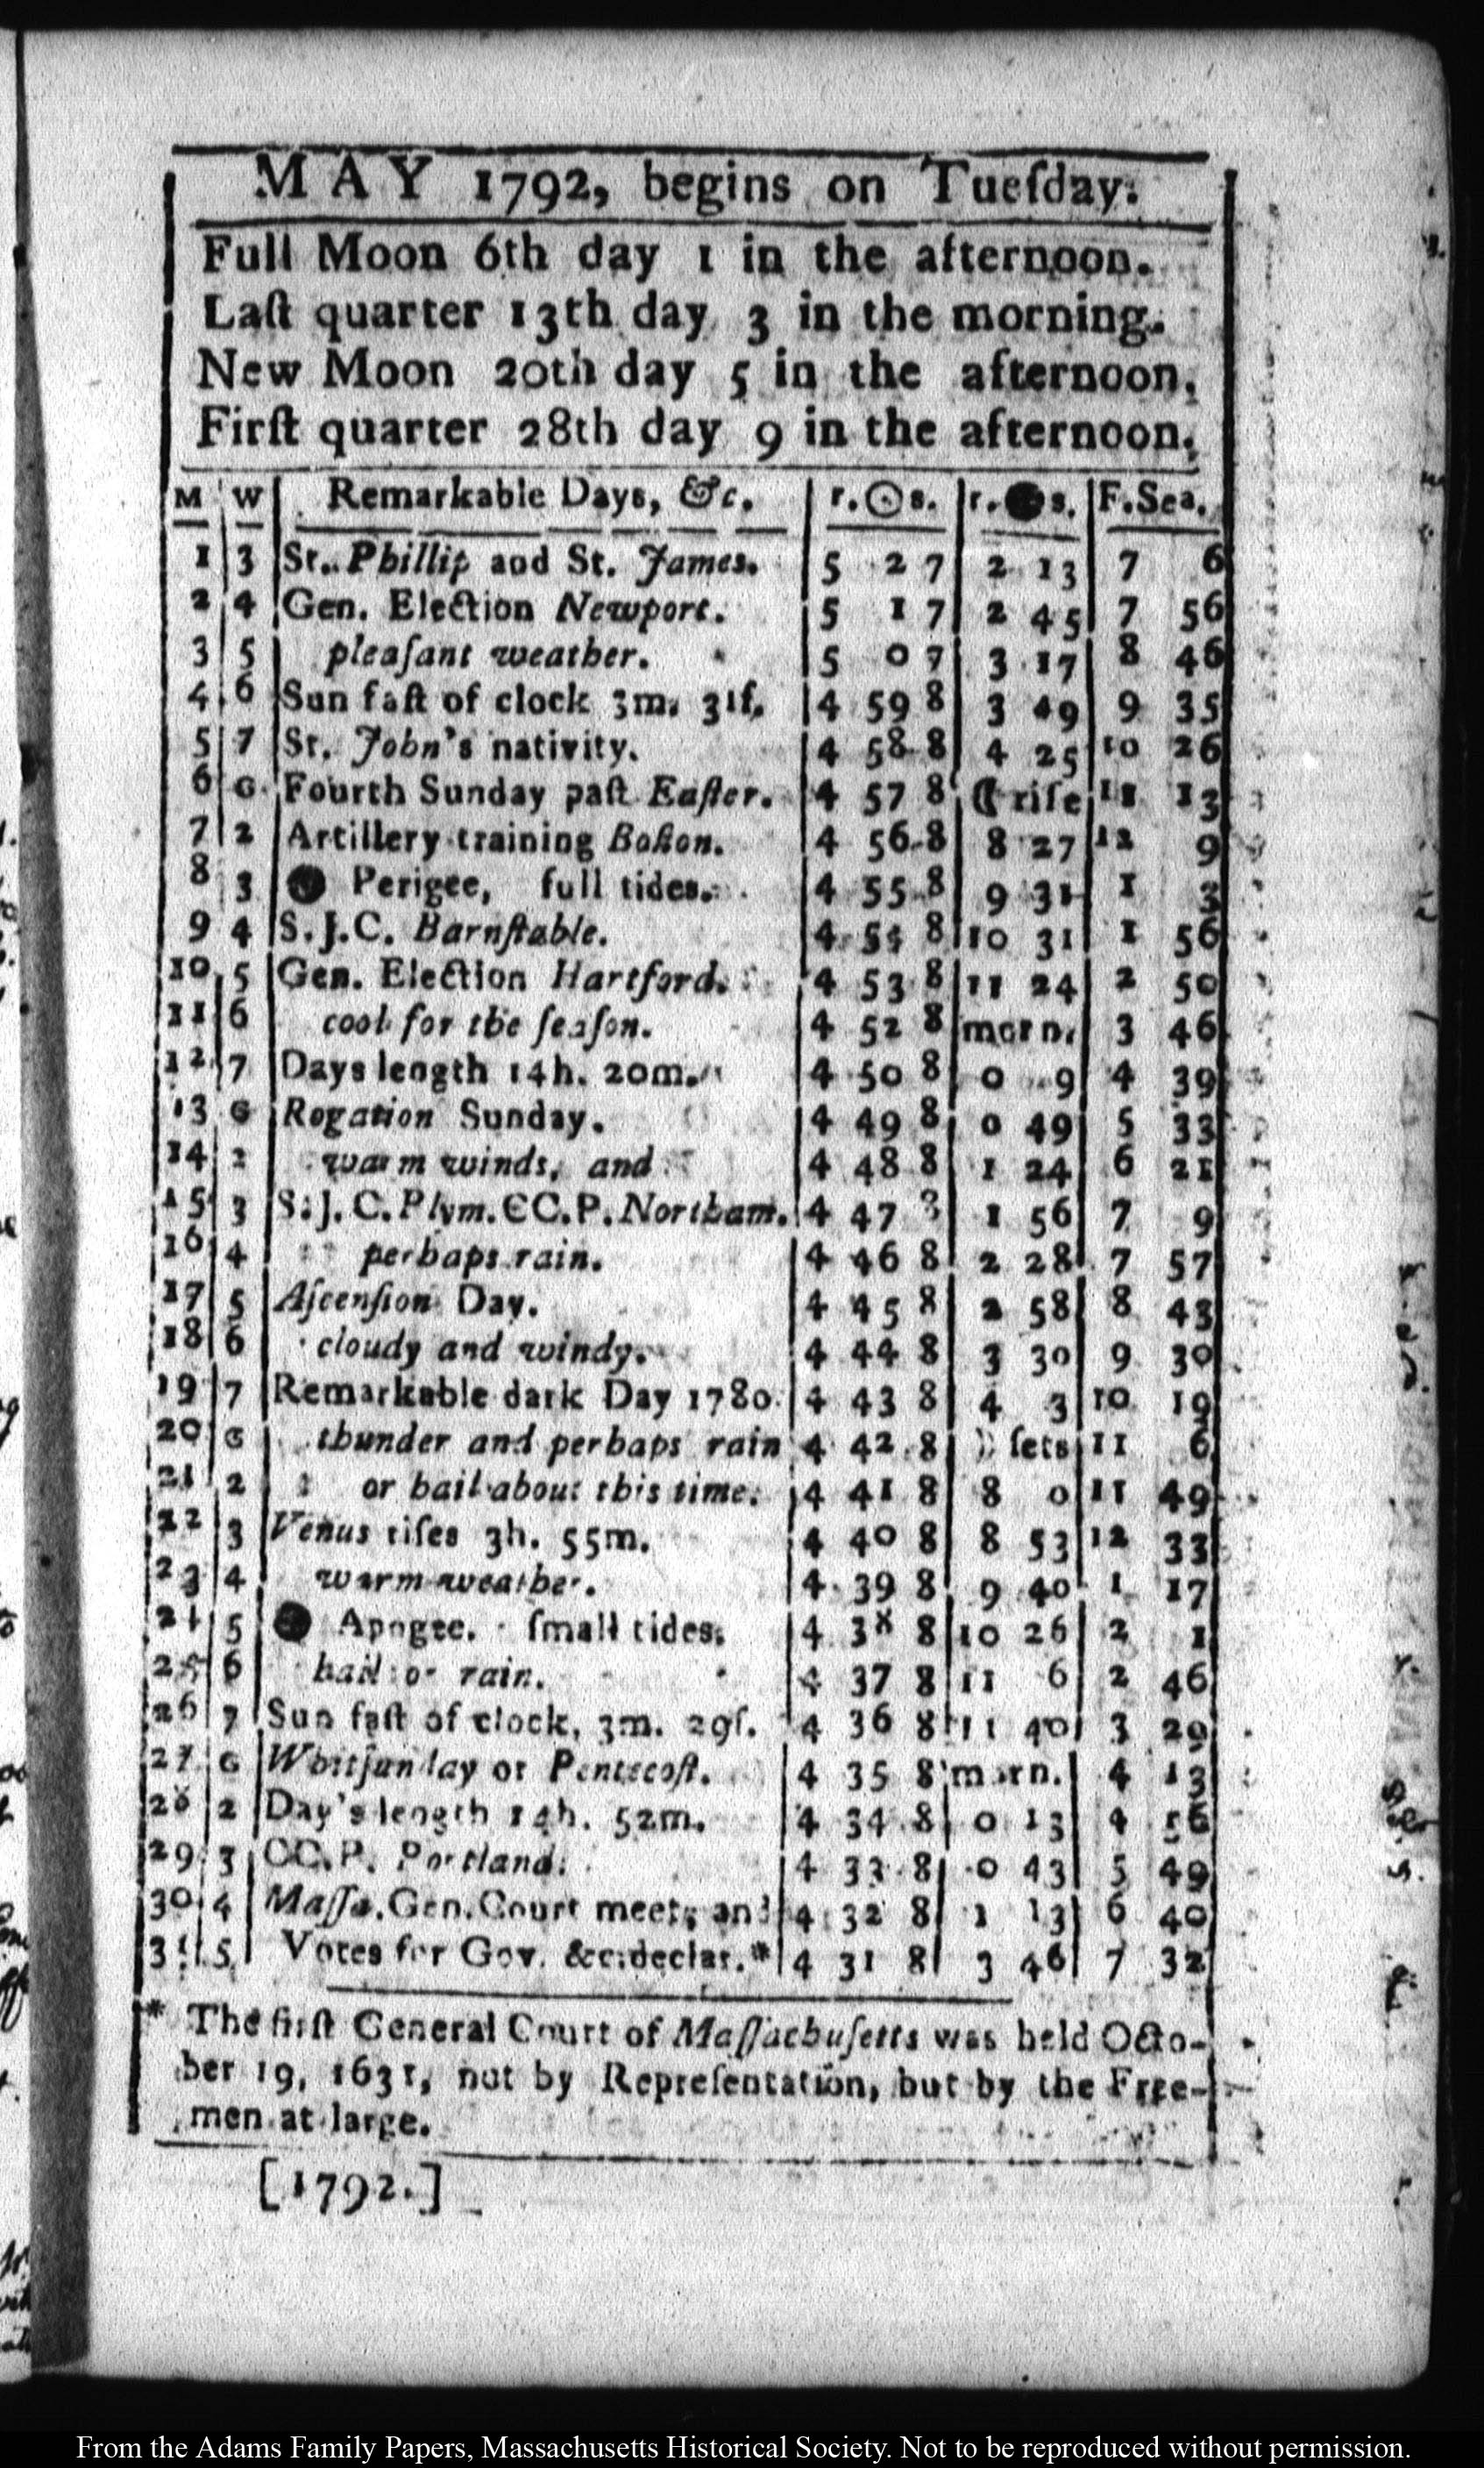 MAY 1792, begins on Tueſday.
Full Moon 6th day 1 in the afternoon.
Laſt quarter 13th day 3 in the morning.
New Moon 20th day 5 in the afternoon.
Firſt quarter 28th day 9 in the afternoon.
M W Remarkable Days, &c. r.☉s. r.●s. F.Sea.
1 3 St. Phillip and St. James. 5 2 7 2 13 7 6
2 4 Gen. Election Newport. 5 1 7 2 45 7 56
3 5 pleaſant weather. 5 0 7 3 17 8 46
4 6 Sun faſt of clock 3m. 31ſ. 4 59 8 3 49 9 35
5 7 St. John's nativity. 4 58 8 4 25 10 26
6 G Fourth Sunday paſt Eaſter. 4 57 8 ☾ riſe 11 13
7 2 Artillery training Boſton. 4 56 8 8 27 12 9
8 3 ● Perigee, full tides. 4 55 8 9 31 1 3
9 4 S.J.C. Barnſtable. 4 54 8 10 31 1 56
10 5 Gen. Election Hartford. 4 53 8 11 24 2 50
11 6 cool for the ſeaſon. 4 52 8 morn. 3 46
12 7 Days length 14h. 20m. 4 50 8 0 9 4 39
13 G Rogation Sunday. 4 49 8 0 49 5 33
14 2 warm winds, and 4 48 8 1 24 6 21
15 3 S.J.C. Plym. CC.P. Northam. 4 47 8 1 56 7 9
16 4 perhaps rain. 4 46 8 2 28 7 57
17 5 Aſcenſion Day. 4 45 8 2 58 8 43
18 6 cloudy and windy. 4 44 8 3 30 9 30
19 7 Remarkable dark Day 1780. 4 43 8 4 3 10 19
20 G thunder and perhaps rain 4 42 8 ☽ ſets 11 6
21 2 or hail about this time. 4 41 8 8 0 11 49
22 3 Venus riſes 3h. 55m. 4 40 8 8 53 12 33
23 4 warm weather. 4 39 8 9 40 1 17
24 5 ● Apogee. ſmall tides. 4 38 8 10 26 2 1
25 6 hail or rain. 4 37 8 11 6 2 46
26 7 Sun faſt of clock, 3m. 29ſ. 4 36 8 11 40 3 29
27 G Whitſunday or Pentecoſt. 4 35 8 morn. 4 13
28 2 Day's length 14h. 52m. 4 34 8 0 13 4 56
29 3 CC.P. Portland. 4 33 8 0 43 5 49
30 4 Maſſa. Gen. Court meet, and 4 32 8 1 13 6 40
31 5 Votes for Gov. &c. declar.* 4 31 8 3 46 7 32
* The firſt General Court of Maſſachuſetts was held Octo-
ber 19, 1631, not by Repreſentation, but by the Free-
men at large.
[1792.]
From the Adams Family Papers, Massachusetts Historical Society. Not to be reproduced without permission.